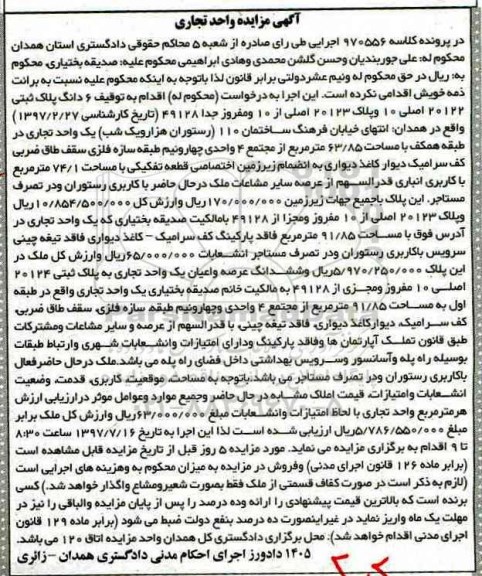 آگهی مزایده واحد تجاری
در پرونده کلاسه ۹۷۰۵۵۶ اجرایی طی رای صادره از شعبه ۵ محاکم حقوقی دادگستری استان همدان
محکوم له: علی جوربندیان وحسن گلشن محمدی وهادی ابراهیمی محکوم علیه: صدیقه بختیاری، محکوم
به: ریال در حق محکوم له ونیم عشردولتی برابر قانون لذا باتوجه به اینکه محکوم علیه نسبت به برائت
ذمه خویش اقدامی نکرده است. این اجرا به درخواست (محکوم له) اقدام به توقیف ۶ دانگ پلاک ثبتی
۲۰۱۲۲ اصلی ۱۰ وپلاک ۲۰۱۲۳ اصلی از ۱۰ ومفروز جدا ۴۹۱۲۸ (تاریخ کارشناسی ۱۳۹۷/۲/۲۷)
واقع در همدان: انتهای خیابان فرهنگ ساختمان ۱۱۰ (رستوران هزارویک شب) یک واحد تجاری در
طبقه همکف با مساحت ۶۳/۸۵ مترمربع از مجتمع ۴ واحدی چهارونیم طبقه سازه فلزی سقف طاق ضربی
کف سرامیک دیوار کاغذ دیواری به انضمام زیرزمین اختصاصی قطعه تفکیکی با مساحت ۷۴/۱ مترمربع
با کاربری انباری قدرالسهم از عرصه سایر مشاعات ملک درحال حاضر با کاربری رستوران ودر تصرف
مستاجر. این پلاک باجمیع جهات زیرزمین ۱۷۰/۰۰۰/۰۰۰ ریال وارزش کل ۱۰/۸۵۴/۵۰۰/۰۰۰ریال
وپلاک ۲۰۱۲۳ اصلی از ۱۰ مفروز ومجزا از ۴۹۱۲۸ بامالکیت صدیقه بختیاری که یک واحد تجاری در
آدرس فوق با مساحت ۹۱/۸۵ مترمربع فاقد پارکینگ کف سرامیک – کاغذ دیواری فاقد تیغه چینی
سرویس باکاربری رستوران ودر تصرف مستاجر انشعابات ۶۵/۰۰۰/۰۰۰ریال وارزش کل ملک در
این پلاک ۵/۹۷۰/۲۵۰/۰۰۰ریال وششدانگ عرصه واعیان یک واحد تجاری به پلاک ثبتی ۲۰۱۲۴
اصلی ۱۰ مفروز ومجزی از ۴۹۱۲۸ به مالکیت خانم صدیقه بختیاری یک واحد تجاری واقع در طبقه
اول به مساحت ۹۱/۸۵ مترمربع از مجتمع ۴ واحدی وچهارونیم طبقه سازه فلزی، سقف طاق ضربی،
کف سرامیک، دیوارکاغذ دیواری، فاقد تیغه چینی، با قدرالسهم از عرصه و سایر مشاعات ومشترکات
طبق قانون تملک آپارتمان ها وفاقد پارکینگ ودارای امتیازات وانشعابات شهری وارتباط طبقات
بوسیله راه پله وآسانسور وسرویس بهداشتی داخل فضای راه پله می باشد. ملک درحال حاضرفعال
باکاربری رستوران ودر تصرف مستاجر می باشد.باتوجه به مساحت، موقعیت، کاربری، قدمت، وضعیت
انشعابات وامتیازات، قیمت املاک مشابه در حال حاضر وجمیع موارد وعوامل موثر درارزیابی ارزش
هرمترمربع واحد تجاری با لحاظ امتیازات وانشعابات مبلغ ۶۳/۰۰۰/۰۰۰ریال وارزش کل ملک برابر
مبلغ ۵/۷۸۶/۵۵۰/۰۰۰ریال ارزیابی شده است لذا این اجرا به تاریخ ۱۳۹۷/۷/۱۶ ساعت ۸:۳۰
تا ۹ اقدام به برگزاری مزایده می نماید. مورد مزایده ۵ روز قبل از تاریخ مزایده قابل مشاهده است
(برابر ماده ۱۲۶ قانون اجرای مدنی) وفروش در مزایده به میزان محکوم به وهزینه های اجرایی است
(لازم به ذکر است در صورت کفاف قسمتی از ملک فقط بصورت شعیرومشاع واگذار خواهد شد.) کسی
برنده است که بالاترین قیمت پیشنهادی را ارائه وده درصد را پس از پایان مزایده والباقی را نیز در
مهلت یک ماه واریز نماید در غیراینصورت ده درصد بنفع دولت ضبط می شود (برابر ماده ۱۲۹ قانون
اجرای مدنی اقدام خواهد شد). محل برگزاری دادگستری کل همدان واحد مزایده اتاق ۱۲۰ می باشد.
۱۴۰۵ دادورز اجرای احکام مدنی دادگستری همدان – زائری